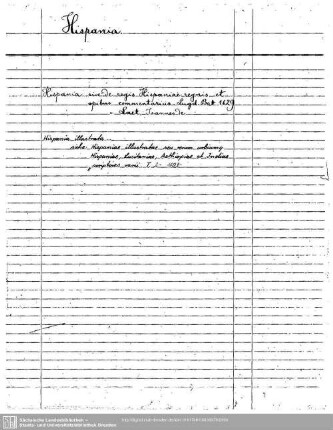 Hispania
Hispania sive de regis Hispaniae regnis et
opibus commentarius. Lugd. Bat 1629
- Laet, Joannes de
Hispania illustrata
siehe Hispaniae illustratae seu rerum urbiumq
Hispaniae, Lusitaniae, Aethiopiae et Indiae
scriptores varii. T. 1-
Sächsische Landesbibliothek -
Staats- und Universitätsbibliothek Dresden